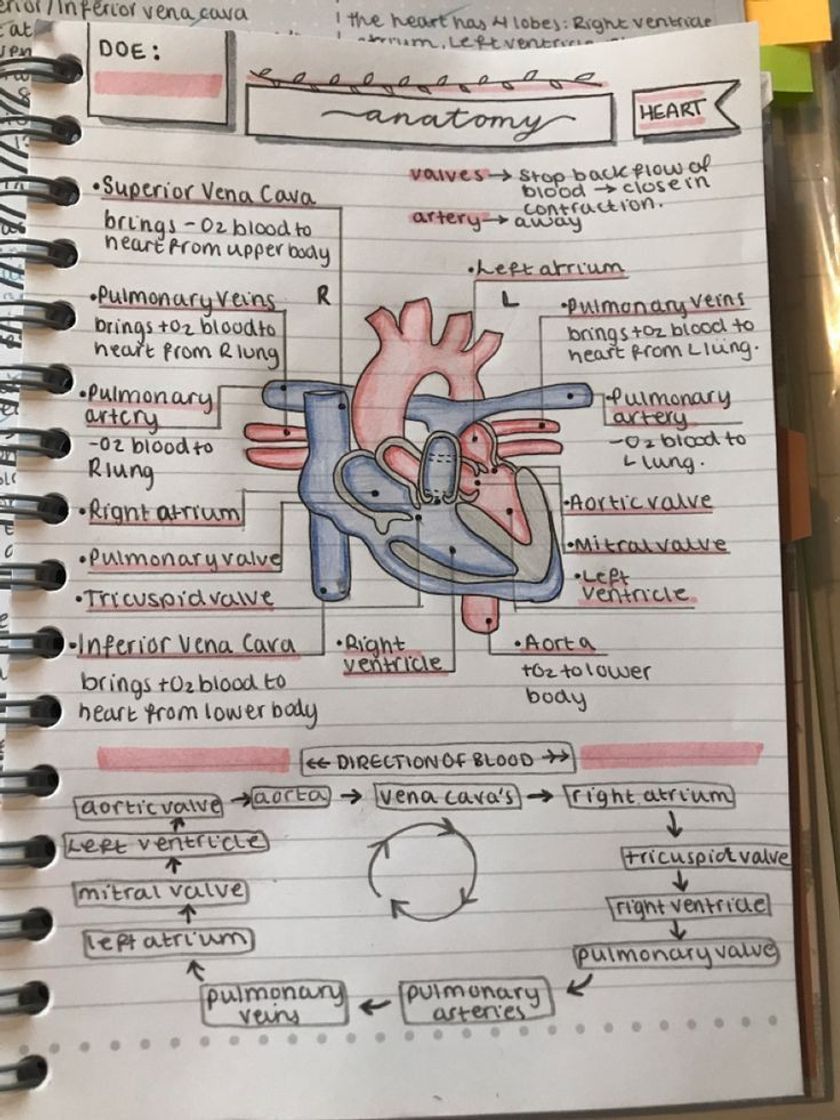 erior/Inferior vena cava
the heart has 4 lobes: Right ventricle
DOE:
anatomy
HEART
valves → stop backflow of
blood → close in
contraction.
artery → away
•Superior Vena Cava
brings -O2 blood to
heart from upper body
•Left atrium
R
L
•Pulmonary veins
brings +O2 blood to
heart from R lung
•Pulmonary veins
brings +O2 blood to
heart from L lung.
•Pulmonary
artery
-O2 blood to
R lung
•Pulmonary
artery
-O2 blood to
L lung.
•Right atrium
•Aortic valve
•Pulmonary valve
•Mitral valve
•Tricuspid valve
•Left
ventricle
•Inferior Vena Cava
brings +O2 blood to
heart from lower body
•Right
ventricle
•Aorta
+O2 to lower
body
←← DIRECTION OF BLOOD →→
aortic valve → aorta → vena cava's → right atrium
↑ ↓
left ventricle
tricuspid valve
↑ ↓
mitral valve
right ventricle
↑ ↓
left atrium
pulmonary valve
↖ ↙
pulmonary
veins
←
pulmonary
arteries